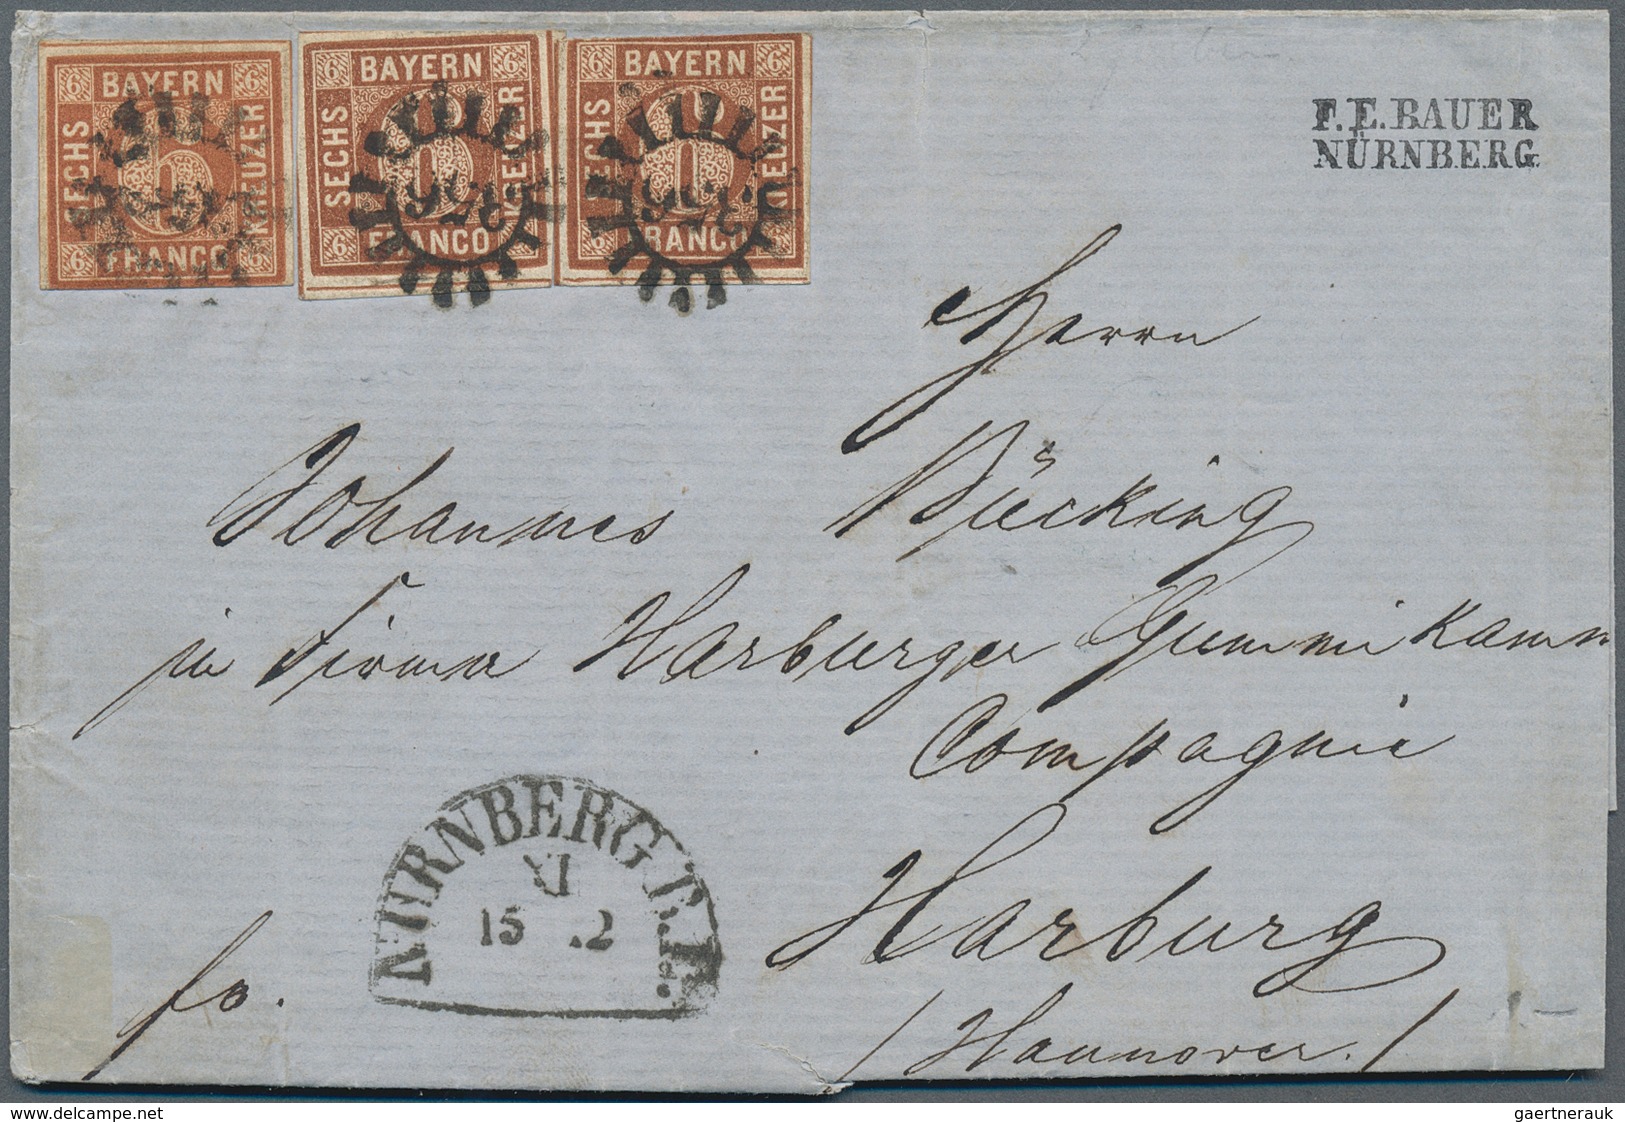 6 BAYERN 6
SECHS
KREUZER
6 FRANCO 6
6 BAYERN 6
SECHS
KREUZER
6 FRANCO
6 BAYERN 6
SECHS
KREUZER
6 FRANCO
356
356
F. E. BAUER
NÜRNBERG.
Herrn
Johannes Bücking
in Firma Harburger Gummi Kamm
Compagnie
Harburg
/Hannover./
fo.
NÜRNBERG.
VI
15 .2
gaertnerauk // delcampe.net